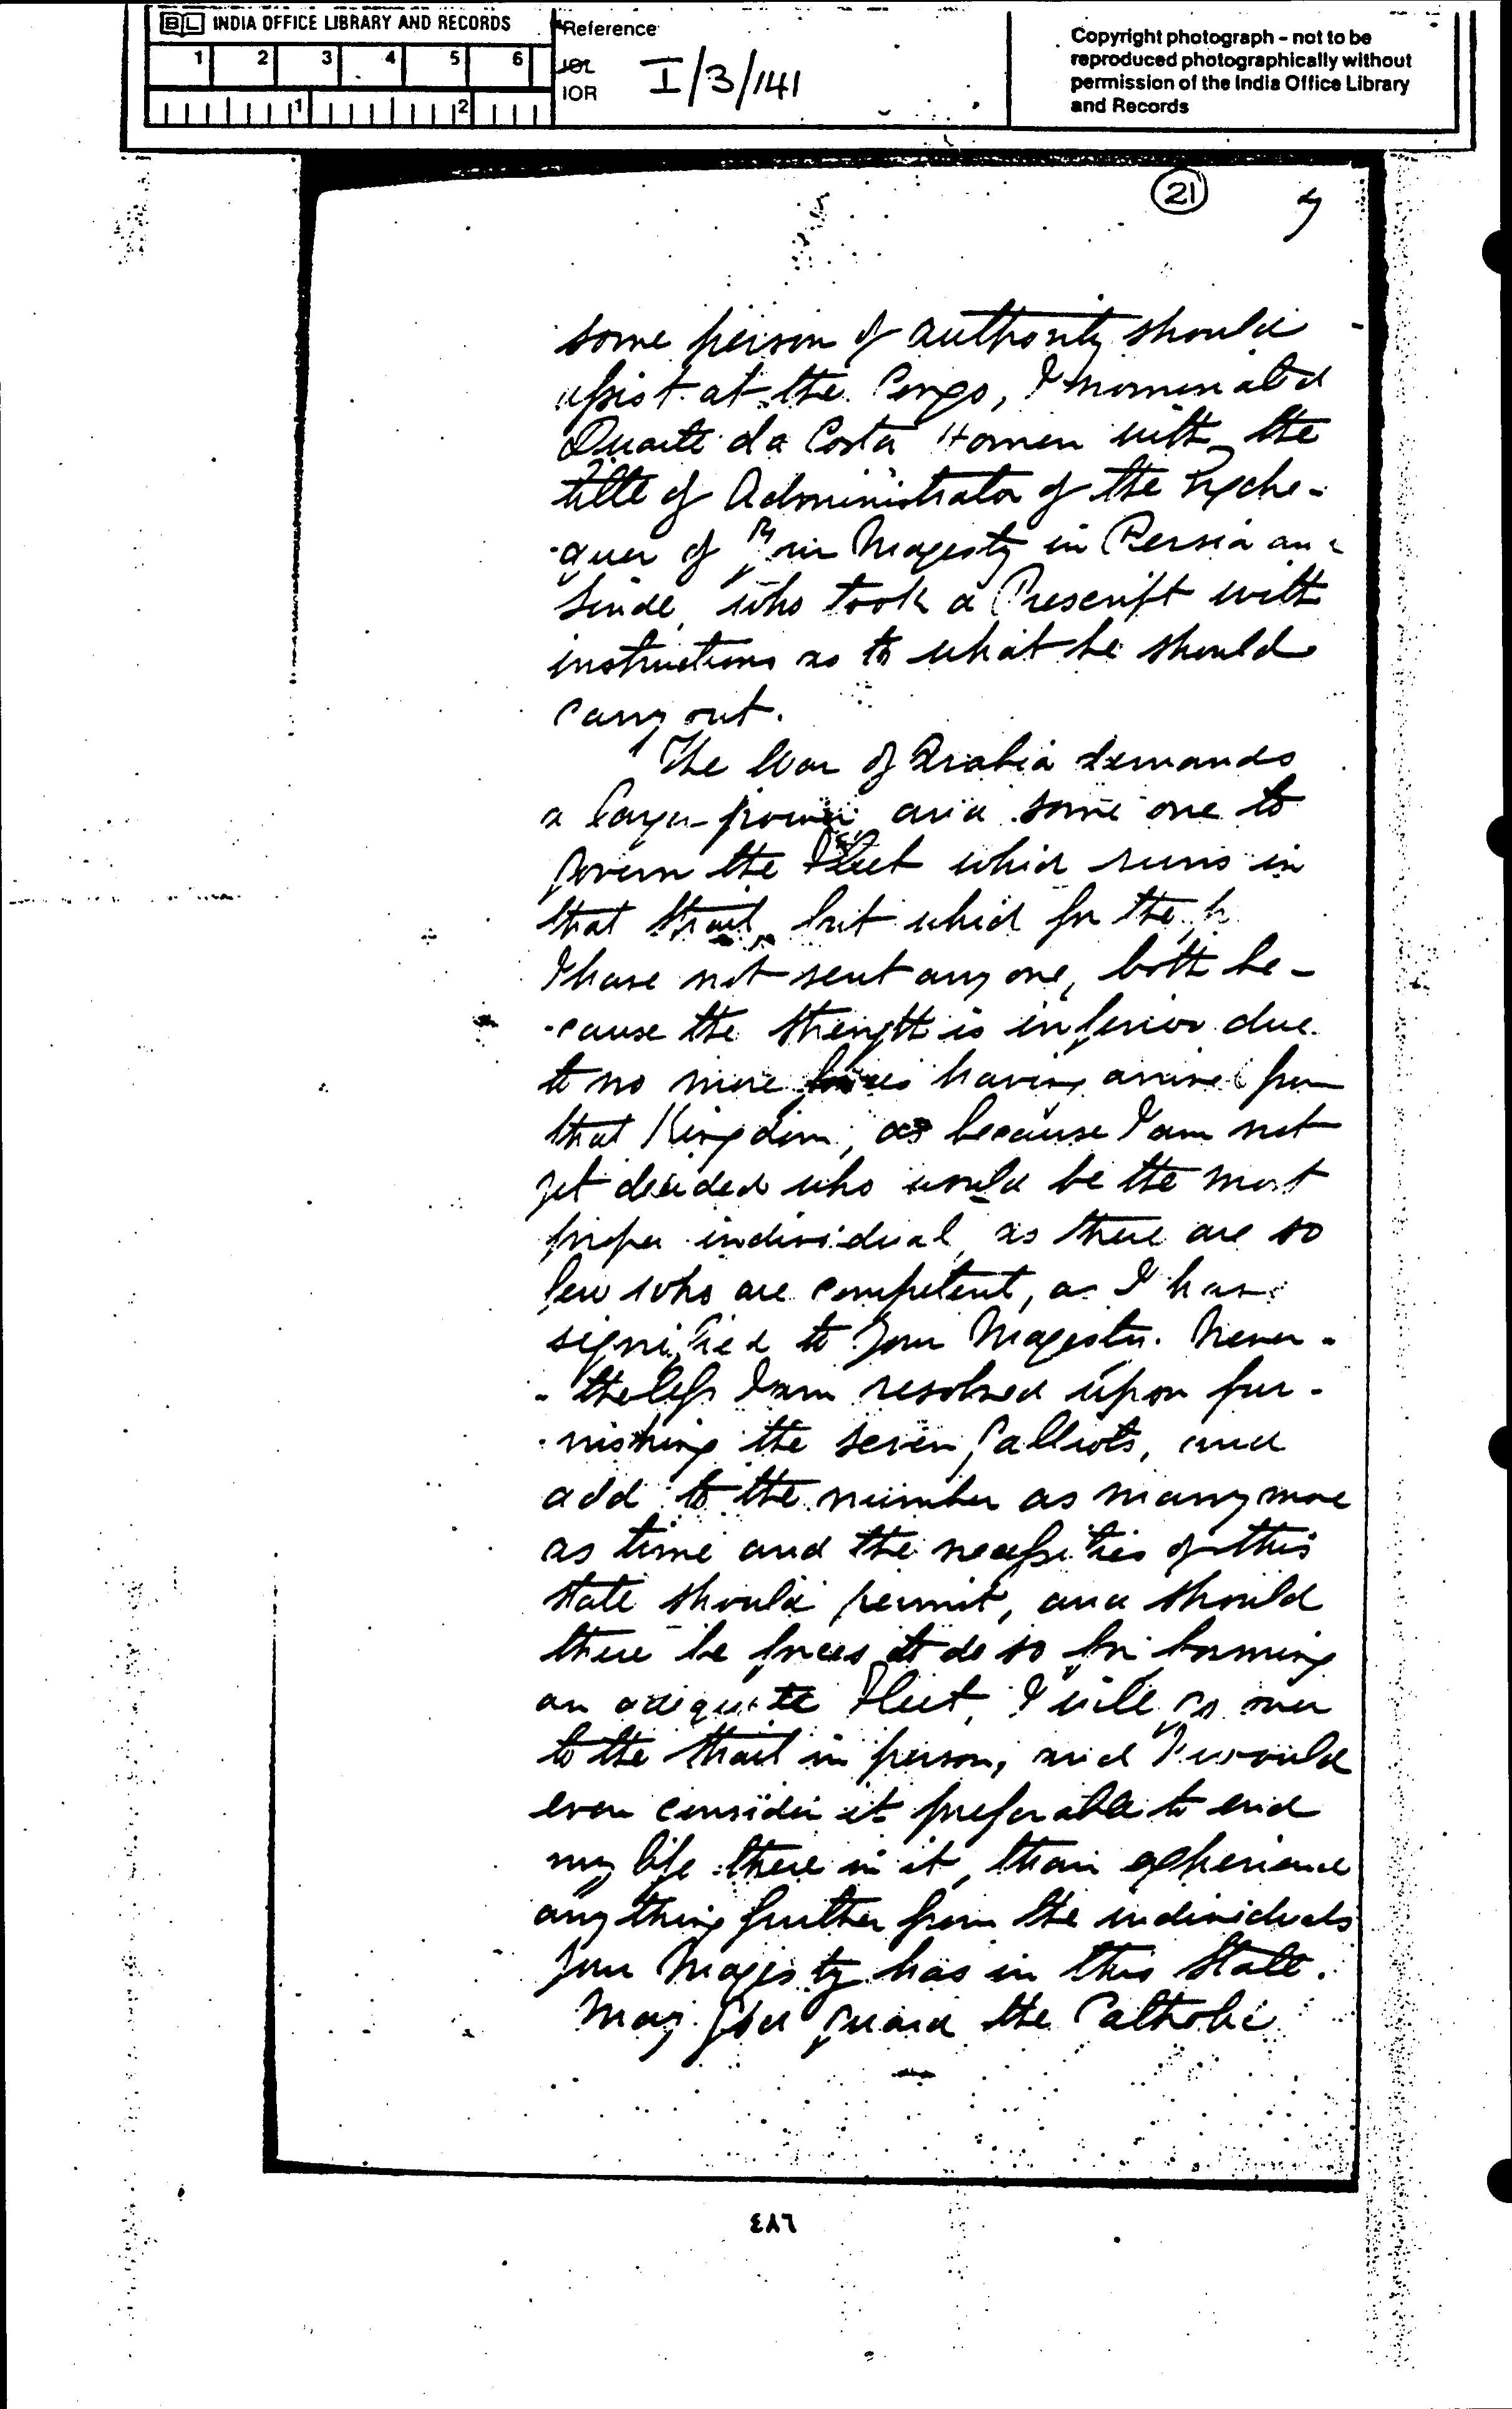 BL INDIA OFFICE LIBRARY AND RECORDS
1 2 3 4 5 6
1 2
Reference
IOL
IOR
I/3/141
Copyright photograph - not to be
reproduced photographically without
permission of the India Office Library
and Records
21
some person of authority should
assist at the Congo, I nominated
Duarte da Costa Homen with the
title of Administrator of the Exche-
-quer of Your Magesty in Persia and
Sinde, who took a Prescript with
instructions as to what he should
carry out.
The War of Arabia demands
a larger power and some one to
govern the Fleet which runs in
that Strait, but which for the
I have not sent any one, both be-
-cause the strength is inferior due
to no more forces having arrived from
that Kingdom, as because I am not
yet decided who would be the most
proper individual, as there are so
few who are competent, as I have
signified to Your Magesty. Never-
-theless I am resolved upon fur-
-nishing the seven Galliots, and
add to the number as many more
as time and the necessities of this
state should permit, and should
there be forces to do so for forming
an adequate Fleet, I will go over
to the Strait in person, and I would
even consider it preferable to end
my life there in it, than experience
any thing further from the individuals
Your Magesty has in this State.
May God guard the Catholic
٤٨٦